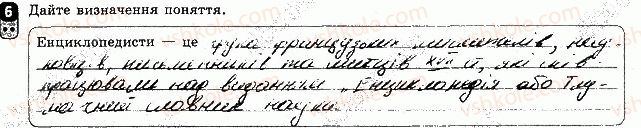 6 Дайте визначення поняття.
Енциклопедисти – це група французьких мислителів, нау-
ковців, письменників та митців XVIII ст, які
працювали над виданням „Енциклопедія або Тлу-
мачний словник наук